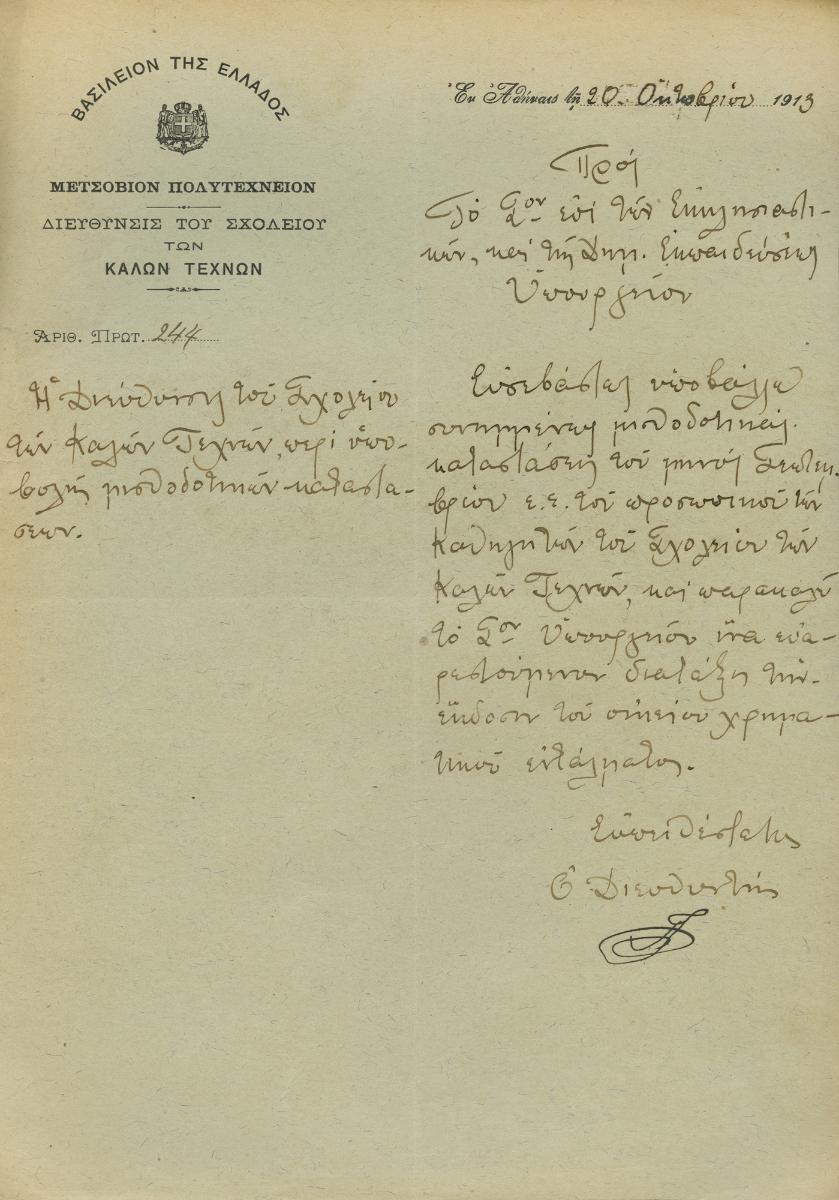 ΒΑΣΙΛΕΙΟΝ ΤΗΣ ΕΛΛΑΔΟΣ
ΜΕΤΣΟΒΙΟΝ ΠΟΛΥΤΕΧΝΕΙΟΝ
ΔΙΕΥΘΥΝΣΙΣ ΤΟΥ ΣΧΟΛΕΙΟΥ
ΤΩΝ
ΚΑΛΩΝ ΤΕΧΝΩΝ
ἈΡΙΘ. ΠΡΩΤ. 244
Ἡ Διεύθυνσις τοῦ Σχολείου
τῶν Καλῶν Τεχνῶν, περὶ ὑπο-
βολῆς μισθοδοτικῶν καταστά-
σεων.
Ἐν Ἀθήναις τῇ 20 Ὀκτωβρίου 1913
Πρὸς
Τὸ Σον ἐπὶ τῶν Ἐκκλησιαστι-
κῶν, καὶ τῆς Δημ. Ἐκπαιδεύσεως
Ὑπουργεῖον
Εὐσεβάστως ὑποβάλλω
συνημμένως μισθοδοτικὰς
καταστάσεις τοῦ μηνὸς Σεπτεμ-
βρίου ἐ.ἔ. τοῦ προσωπικοῦ τῶν
Καθηγητῶν τοῦ Σχολείου τῶν
Καλῶν Τεχνῶν, καὶ παρακαλῶ
τὸ Σον Ὑπουργεῖον ἵνα εὐα-
ρεστούμενον διατάξῃ τὴν
ἔκδοσιν τοῦ οἰκείου χρημα-
τικοῦ ἐντάλματος.
Εὐπειθέστατος
Ὁ Διευθυντὴς